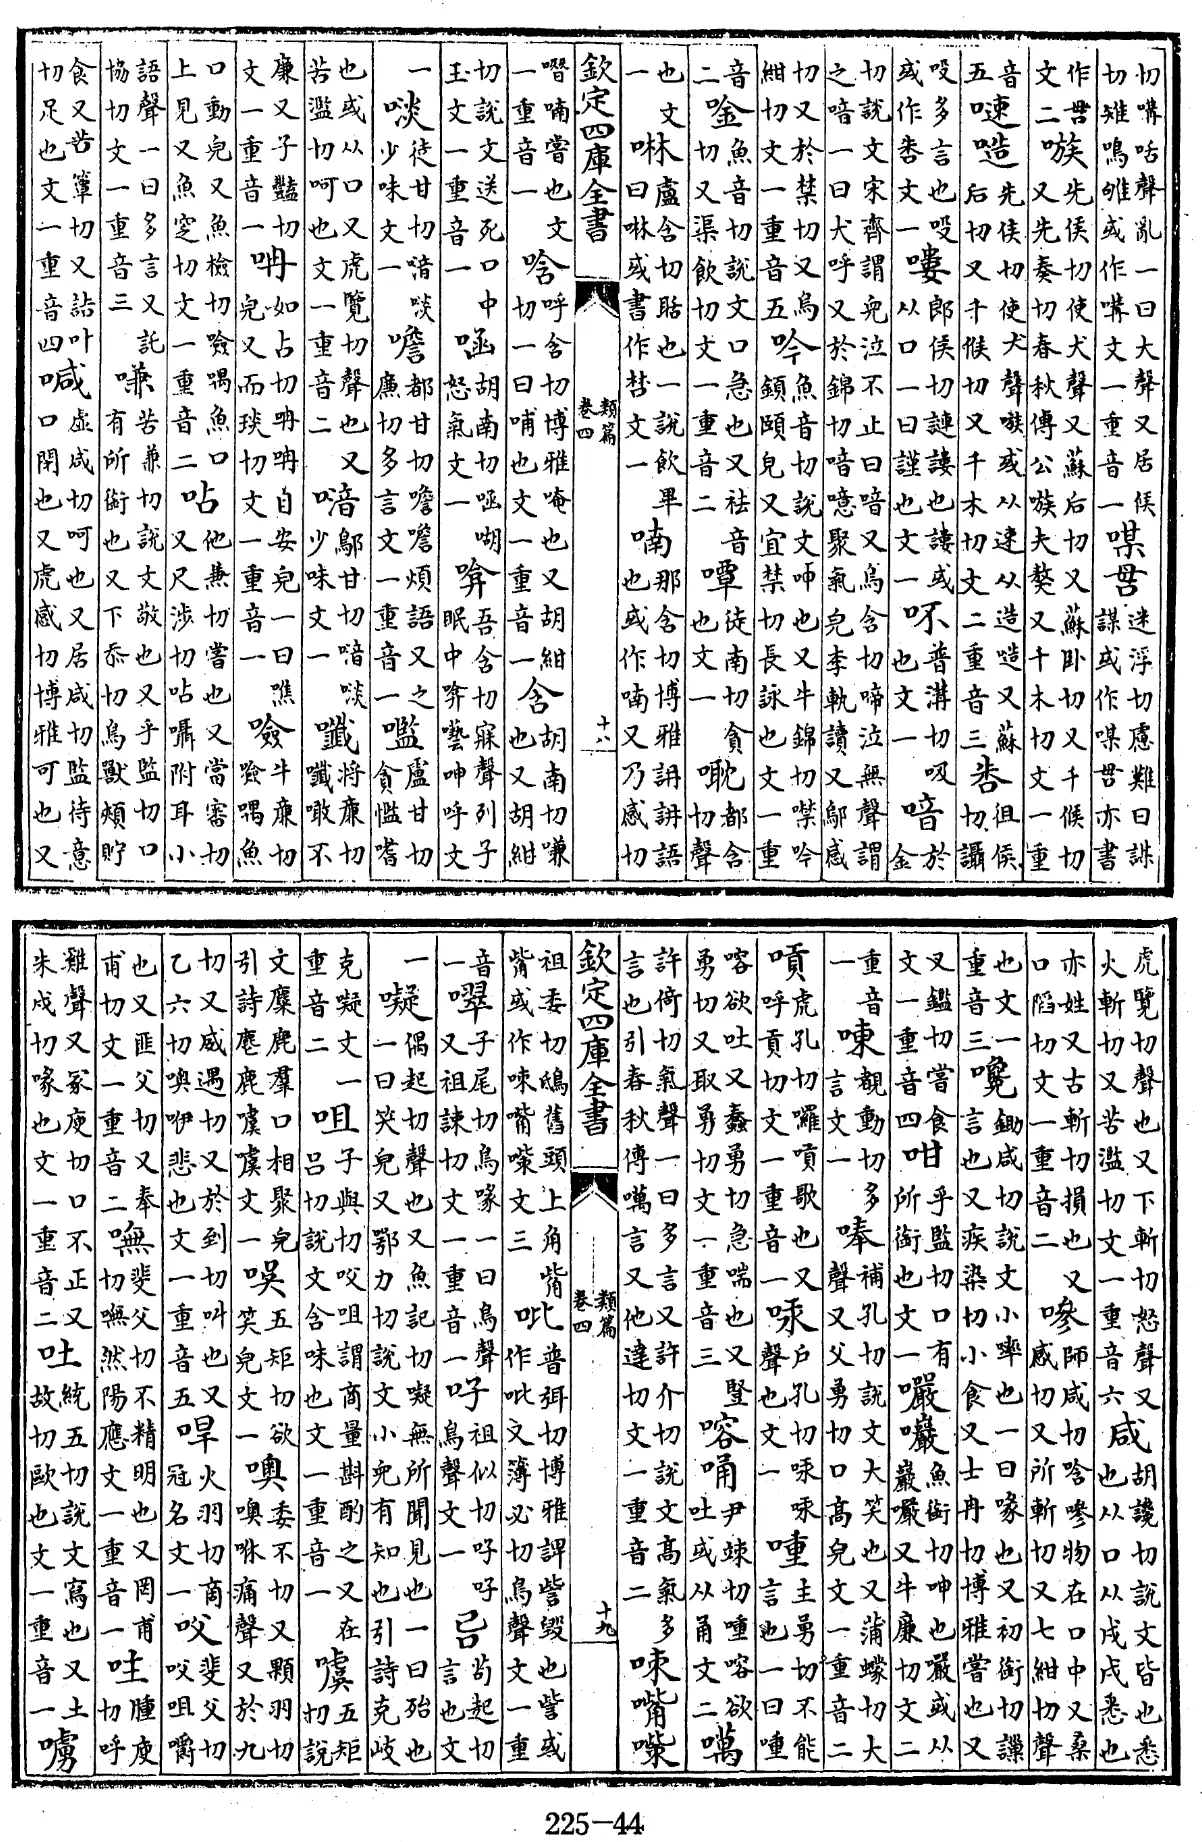 切㗕咕聲亂一曰大聲又居侯切雉鳴雊或作㗕文一重音一㖼迷浮切慮難曰謀或作㖼亦書
作文二嗾先侯切使犬聲又蘇后切又蘇卧切又千候切又先奏切春秋傳公嗾夫獒又千木切文一重
音五𠻝㗢先侯切使犬聲嗾或从速从造㗢又蘇后切又千候切又千木切文二重音三徂侯切讘
吺多言也吺或作文一嘍郎侯切謰謱也謱或从口一曰謹也文一㕻普溝切吸也文一喑於金
切說文宋齊謂兒泣不止曰喑又烏含切啼泣無聲謂之喑一曰犬呼又於錦切喑噫聚氣皃李軌讀又鄔感
切又於禁切又烏紺切文一重音五吟魚音切說文呻也又牛錦切噤吟頷頤皃又宜禁切長詠也文一重
音二唫魚音切說文口急也又袪音切又渠飲切文一重音二嘾徒南切貪也文一耽都含切聲
也文一啉盧含切聒也一說飲畢曰啉或書作文一喃那含切博雅詀諵語也或作喃又乃感切
欽定四庫全書 類篇 卷四 十八
噆喃嘗也文一重音一唅呼含切博雅唵也又胡紺切一曰哺也文一重音一含胡南切嗛也又胡紺
切說文送死口中玉文一重音一㖤胡南切㖤㗅怒氣文一㖮吾含切寐聲列子眠中㖮囈呻呼文
一啖徒甘切㗐啖少味文一噡都甘切噡噡煩語又之廉切多言文一重音一嚂盧甘切貪懢嗜
也或从口又虎覽切聲也又苦濫切呵也文一重音二㗐鄔甘切㗐啖少味文一㘋將廉切㘋噉不
廉又子豔切文一重音一呥如占切呥呥自安皃一曰噍皃又而琰切文一重音一噞牛廉切噞喁魚
口動皃又魚檢切噞喁魚口上見又魚窆切文一重音二呫他兼切嘗也又當審切又尺涉切呫囁附耳小
語聲一曰多言又託協切文一重音三嗛苦兼切說文敬也又乎監切口有所銜也又下忝切鳥獸頰貯
食又苦簟切又詰叶切足也文一重音四喊虛咸切呵也又居咸切監待意口閉也又虎感切博雅可也又
虎覽切聲也又下斬切怒聲又火斬切又苦濫切文一重音六咸胡讒切說文皆也悉也从口从戌戌悉也
亦姓又古斬切損也又口陷切文一重音二嘇師咸切唅嘇物在口中又桑感切又所斬切又七紺切聲
也文一重音三嚵鋤咸切說文小啐也一曰喙也又初銜切讒言也又疾染切小食又士冉切博雅嘗也又
又鑑切嘗食文一重音四㕭乎監切口有所銜也文一嚴巖魚銜切呻也嚴或从巖嚴又牛廉切文二
重音一㖦覩動切多言文一唪補孔切說文大笑也又蒲蠓切大聲又父勇切口高皃文一重音二
嗊虎孔切囉嗊歌也又呼貢切文一重音一㖓戶孔切㖓㖓聲也文一㖒主勇切不能言也一曰㖒
㗖欲吐又蠢勇切急喘也又豎勇切又取勇切文一重音三嗈㗈尹竦切㖒嗈欲吐或从甬文二噧
許倚切氣聲一曰多言又許介切說文高氣多言也引春秋傳噧言又他達切文一重音二㖢嘴㗜
欽定四庫全書 類篇 卷四 十九
祖委切鴟舊頭上角觜觜或作㖢嘴㗜文三吡普弭切博雅諀訾毀也訾或作吡又簿必切鳥聲文一重
音一嘒子尾切鳥喙一曰鳥聲又祖誄切文一重音一吇祖似切吇吇鳥聲文一㠱苟起切言也文
一㘈偶起切聲也又魚記切㘈無所聞見也一曰殆也一曰笑皃又鄂力切說文小兒有知也引詩克岐
克㘈文一重音二咀子與切咬咀謂商量斟酌之又在呂切說文含味也文一重音一噳五矩切說
文麋鹿羣口相聚皃引詩麀鹿噳噳文一㕦五矩切欲笑皃文一噢委不切又顆羽切噢咻痛聲又於九
切又威遇切又於到切叫也又乙六切噢咿悲也文一重音五㖔火羽切商冠名文一㕮斐父切㕮咀嚼
也又匪父切又奉甫切文一重音二嘸斐父切不精明也又罔甫切嘸然陽應文一重音一㕴腫庾切呼
雞聲又冢庾切口不正又朱戍切喙也文一重音二吐統五切說文寫也又土故切歐也文一重音一嘑
225—44